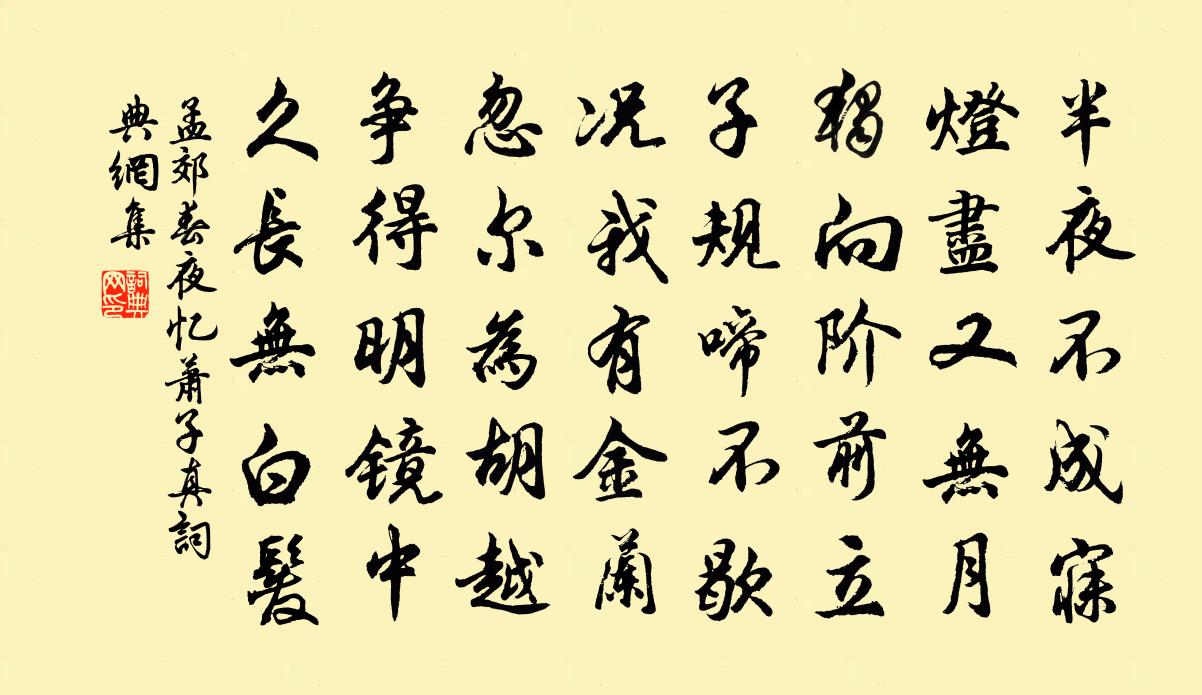 半夜不成寐
燈盡又無月
獨向阶前立
子規啼不歇
况我有金蘭
忽尔為胡越
争得明镜中
久長無白髮
孟郊春夜忆蕭子真詞
典網集
詞典
网印